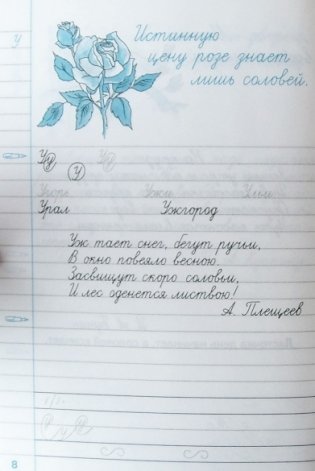 у
Истинную
цену розе знает
лишь соловей.
Уу Уу
У
Урал Ужгород
Уж тает снег, бегут ручьи,
В окно повеяло весною.
Засвищут скоро соловьи,
И лес оденется листвою!
А. Плещеев
8